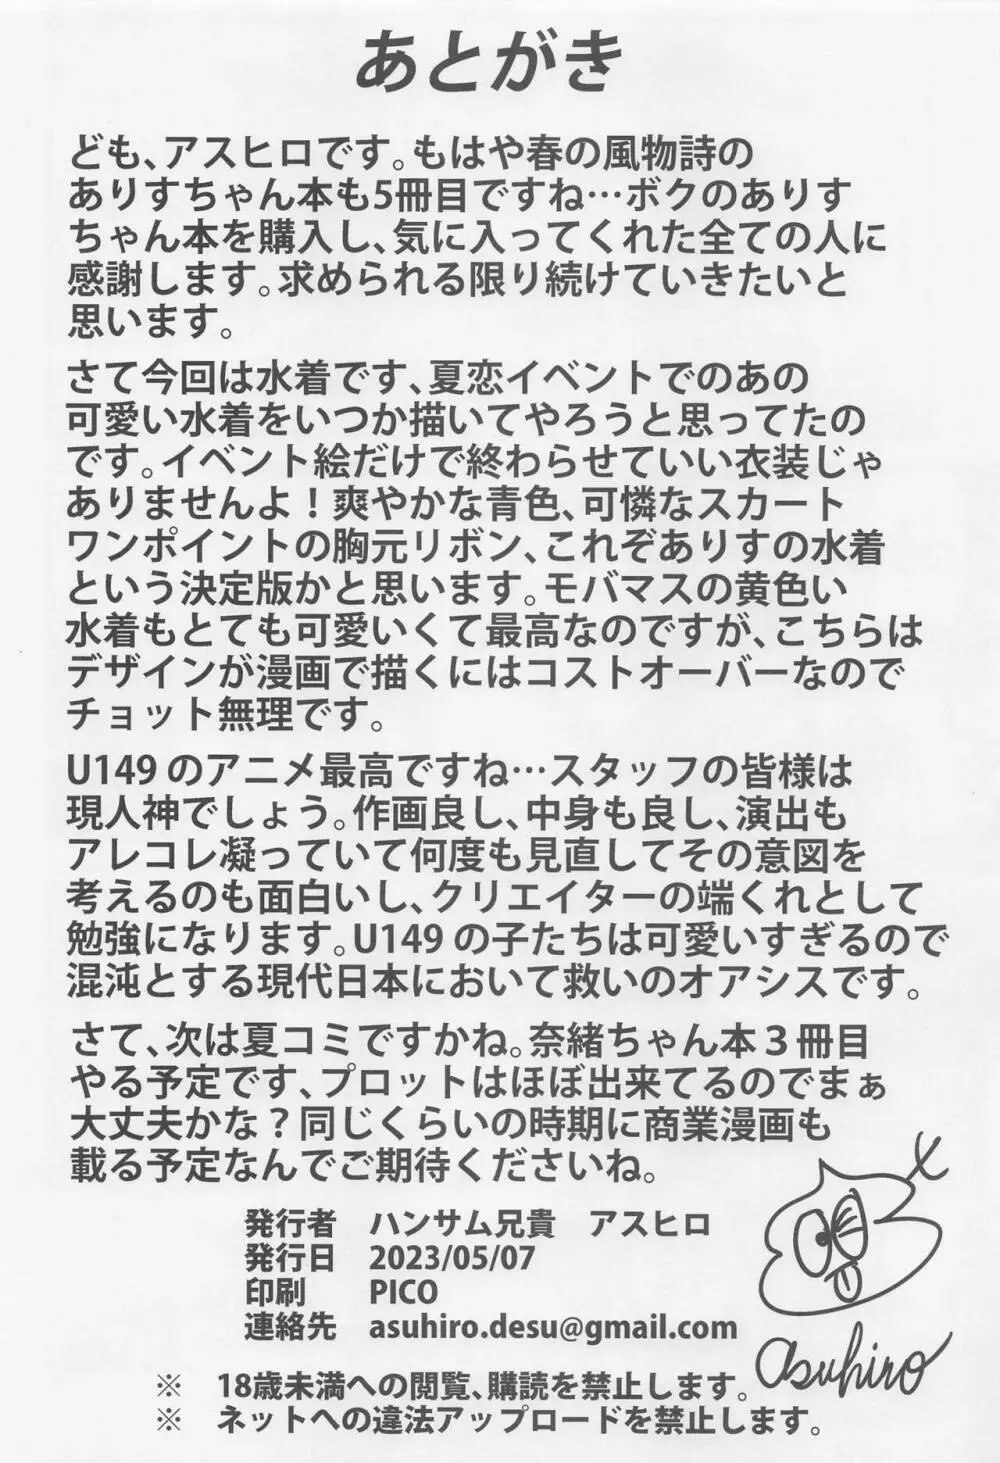 あとがき
ども、アスヒロです。もはや春の風物詩の
ありすちゃん本も5冊目ですね…ボクのありす
ちゃん本を購入し、気に入ってくれた全ての人に
感謝します。求められる限り続けていきたいと
思います。
さて今回は水着です、夏恋イベントでのあの
可愛い水着をいつか描いてやろうと思ってたの
です。イベント絵だけで終わらせていい衣装じゃ
ありませんよ！爽やかな青色、可憐なスカート
ワンポイントの胸元リボン、これぞありすの水着
という決定版かと思います。モバマスの黄色い
水着もとても可愛いくて最高なのですが、こちらは
デザインが漫画で描くにはコストオーバーなので
チョット無理です。
U149のアニメ最高ですね…スタッフの皆様は
現人神でしょう。作画良し、中身も良し、演出も
アレコレ凝っていて何度も見直してその意図を
考えるのも面白いし、クリエイターの端くれとして
勉強になります。U149の子たちは可愛いすぎるので
混沌とする現代日本において救いのオアシスです。
さて、次は夏コミですかね。奈緒ちゃん本３冊目
やる予定です、プロットはほぼ出来てるのでまぁ
大丈夫かな？同じくらいの時期に商業漫画も
載る予定なんでご期待くださいね。
発行者　ハンサム兄貴　アスヒロ
発行日　2023/05/07
印刷　PICO
連絡先　asuhiro.desu@gmail.com
asuhiro
※　18歳未満への閲覧、購読を禁止します。
※　ネットへの違法アップロードを禁止します。